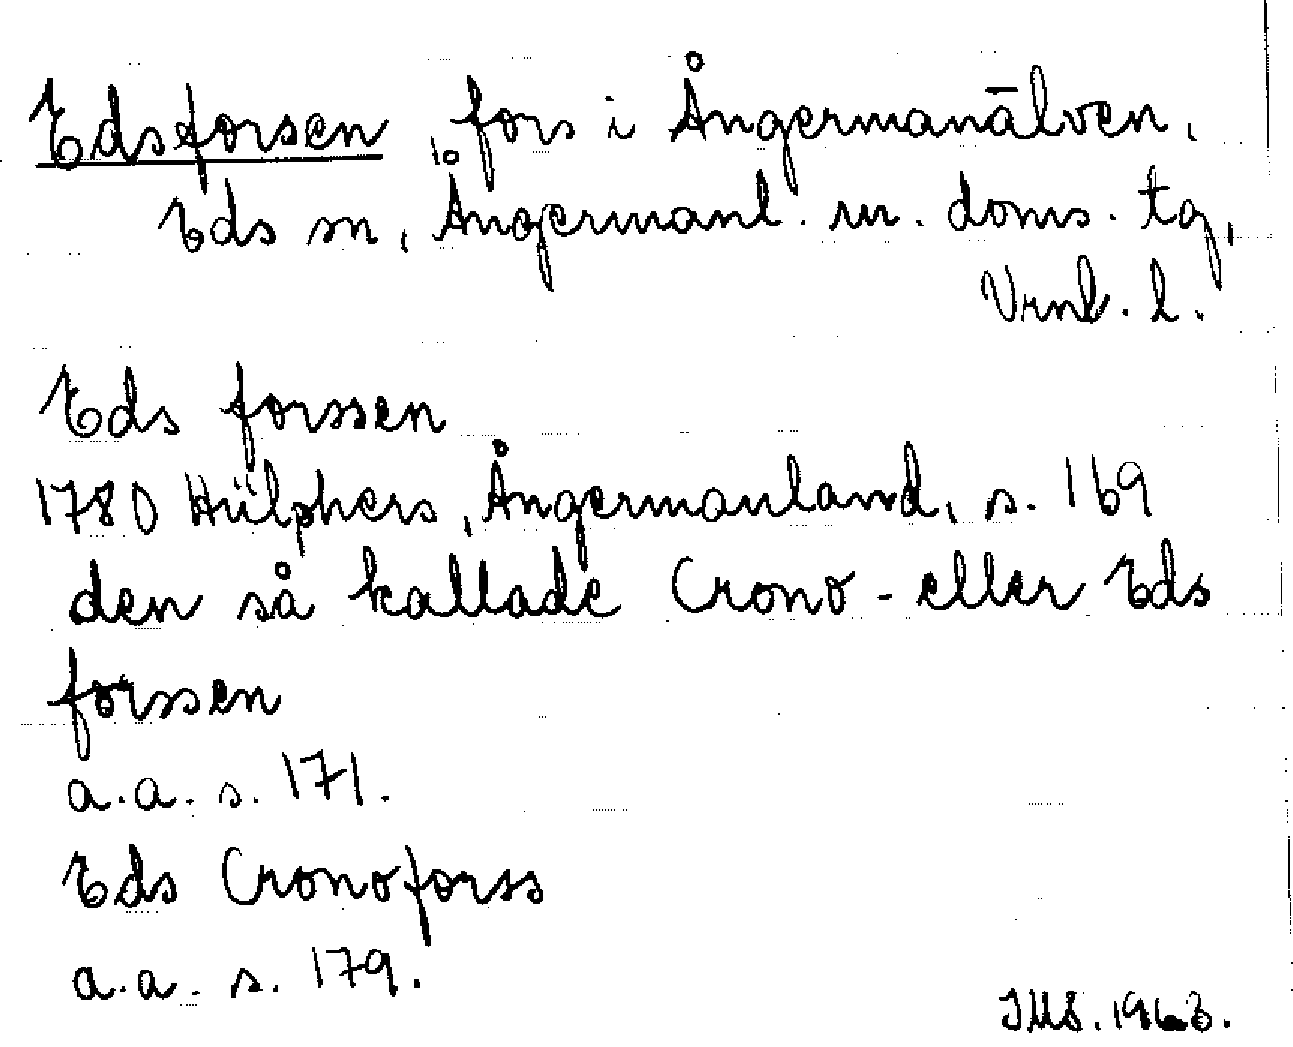 Edsforsen, fors i Ångermanälven,
Eds sn, Ångermanl. m. doms. tg,
Vrnl. l.
Eds forssen
1780 Hülphers, Ångermanland, s. 169
den så kallade Crono- eller Eds
forssen
a.a. s. 171.
Eds Cronoforss
a.a. s. 179.
IMS. 1963.